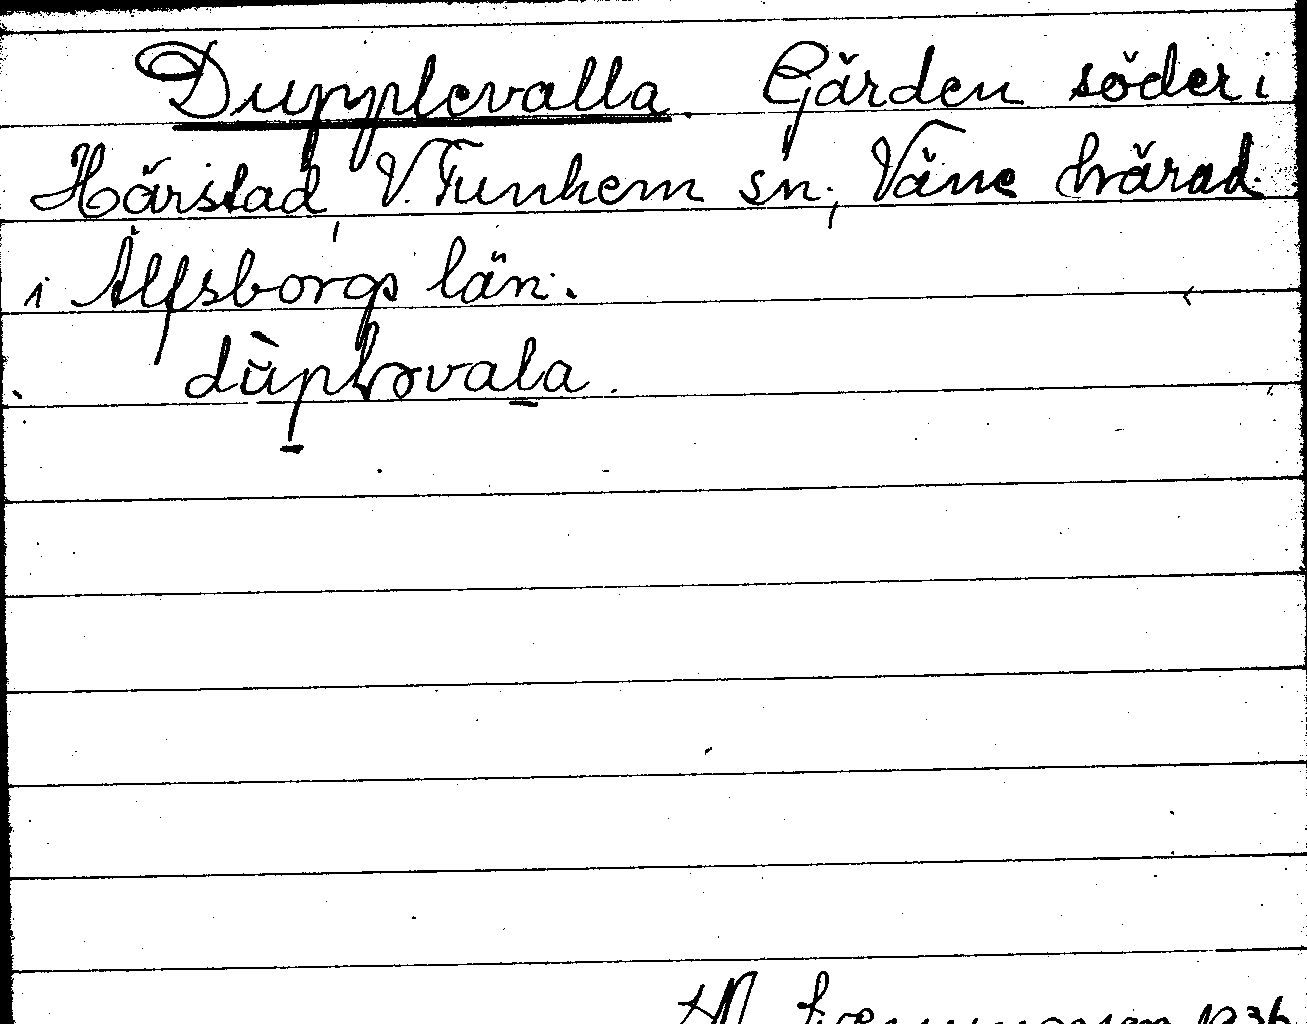 Dupplevalla. Gärden söder i
Härstad, V. Tunhem sn., Väne härad
i Älfsborgs län.
dùpləvala.